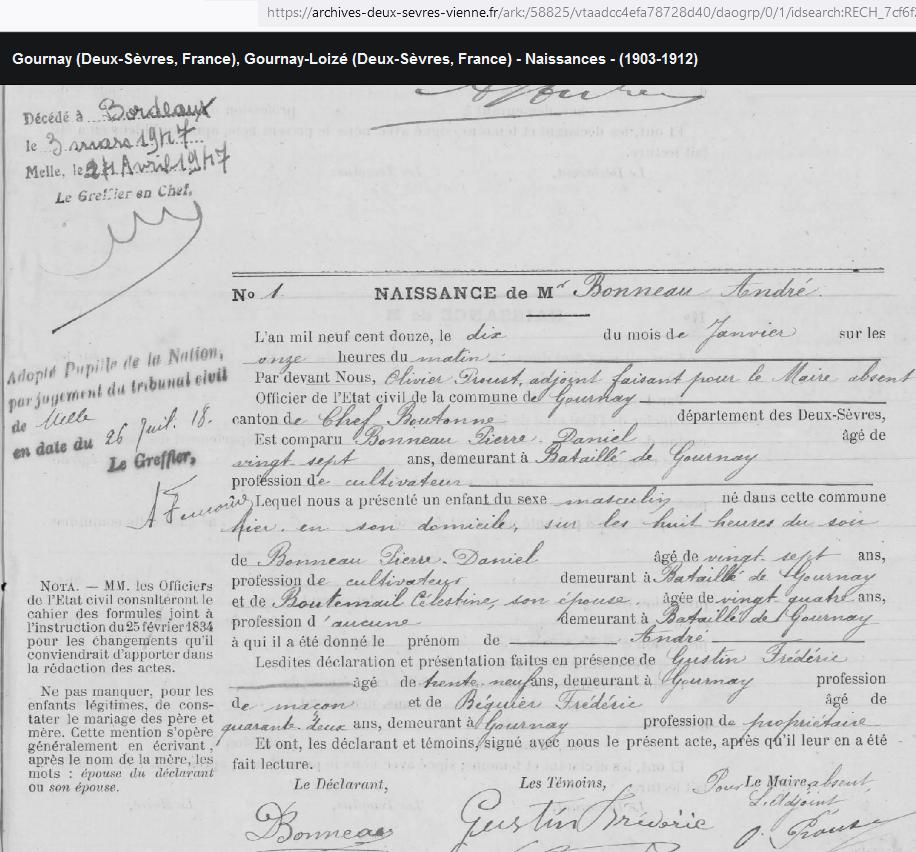 https://archives-deux-sevres-vienne.fr/ark:/58825/vtaadcc4efa78728d40/daogrp/0/1/idsearch:RECH_7cf6f
Gournay (Deux-Sèvres, France), Gournay-Loizé (Deux-Sèvres, France) - Naissances - (1903-1912)
Décédé à Bordeaux
le 3 mars 1947
Melle, le 21 Avril 1947
Le Greffier en Chef,
No 1. NAISSANCE de Mr Bonneau André.
L'an mil neuf cent douze, le dix du mois de Janvier sur les
onze heures du matin
Par devant Nous, Olivier Proust, adjoint faisant pour le Maire absent
Officier de l'Etat civil de la commune de Gournay
canton de Chef Boutonne département des Deux-Sèvres,
Est comparu Bonneau Pierre-Daniel âgé de
vingt sept ans, demeurant à Bataillé de Gournay
profession de cultivateur
Lequel nous a présenté un enfant du sexe masculin né dans cette commune
hier en son domicile, sur les huit heures du soir
de Bonneau Pierre-Daniel âgé de vingt sept ans,
profession de cultivateur demeurant à Bataillé de Gournay
et de Boutemail Célestine, son épouse. âgée de vingt-quatre ans,
profession d'aucune demeurant à Bataillé de Gournay
à qui il a été donné le prénom de André
Lesdites déclaration et présentation faites en présence de Gustin Frédéric
âgé de trente-neuf ans, demeurant à Gournay profession
de maçon et de Béguier Frédéric âgé de
quarante-deux ans, demeurant à Gournay profession de propriétaire
Et ont, les déclarant et témoins, signé avec nous le présent acte, après qu'il leur en a été
fait lecture.
Le Déclarant, Les Témoins, Pour Le Maire, absent
L'Adjoint
Bonneau Gustin Fréderic O. Proust
Adopté Pupille de la Nation,
par jugement du tribunal civil
de Melle
en date du 26 Juil. 18.
Le Greffier,
NOTA. — MM. les Officiers
de l'Etat civil consulteront le
cahier des formules joint à
l'instruction du 25 février 1834
pour les changements qu'il
conviendrait d'apporter dans
la rédaction des actes.
Ne pas manquer, pour les
enfants légitimes, de cons-
tater le mariage des père et
mère. Cette mention s'opère
généralement en écrivant,
après le nom de la mère, les
mots : épouse du déclarant
ou son épouse.